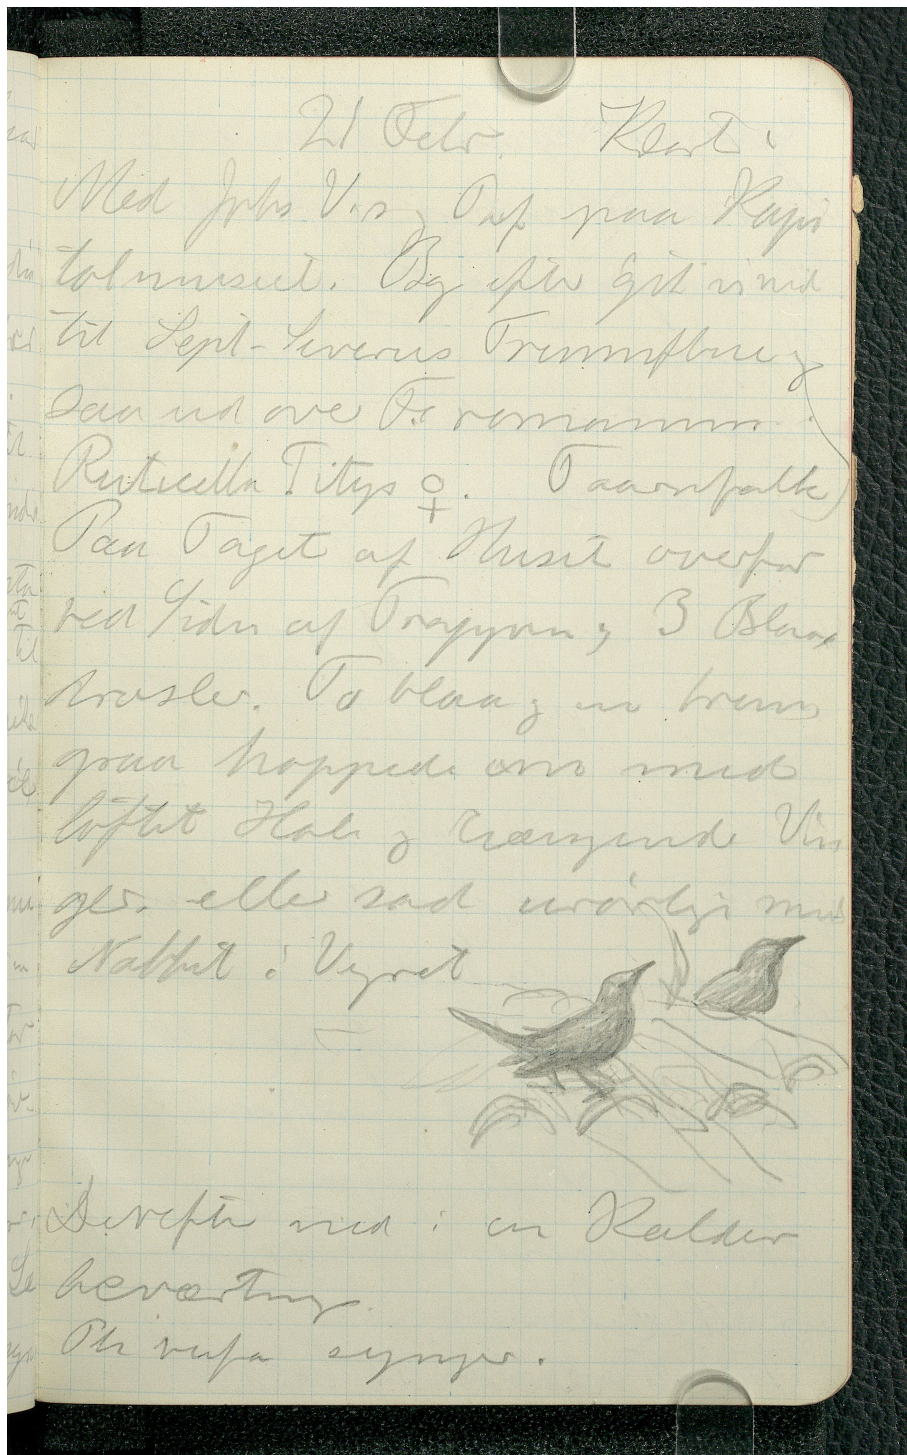 21 Febr. Klart.
Med Johs V. og Paf paa Kapi
tolmuseet. Bag efter gik vi ned
til Sept-Severus Triumfbue og
saa ud over Fo romanum.
Ruticilla Titys ♀. Taarnfalk
Paa Taget af Huset overfor
ved Siden af Trappen og 3 Blaa
drosler. To blaa og en brun
graa hoppede om med
løftet Hale og hængende Vin
ger. eller sad urørlige med
Næbbet i Vejret
Derefter ned i en Kælder
beværtning.
Ph rufa synger.